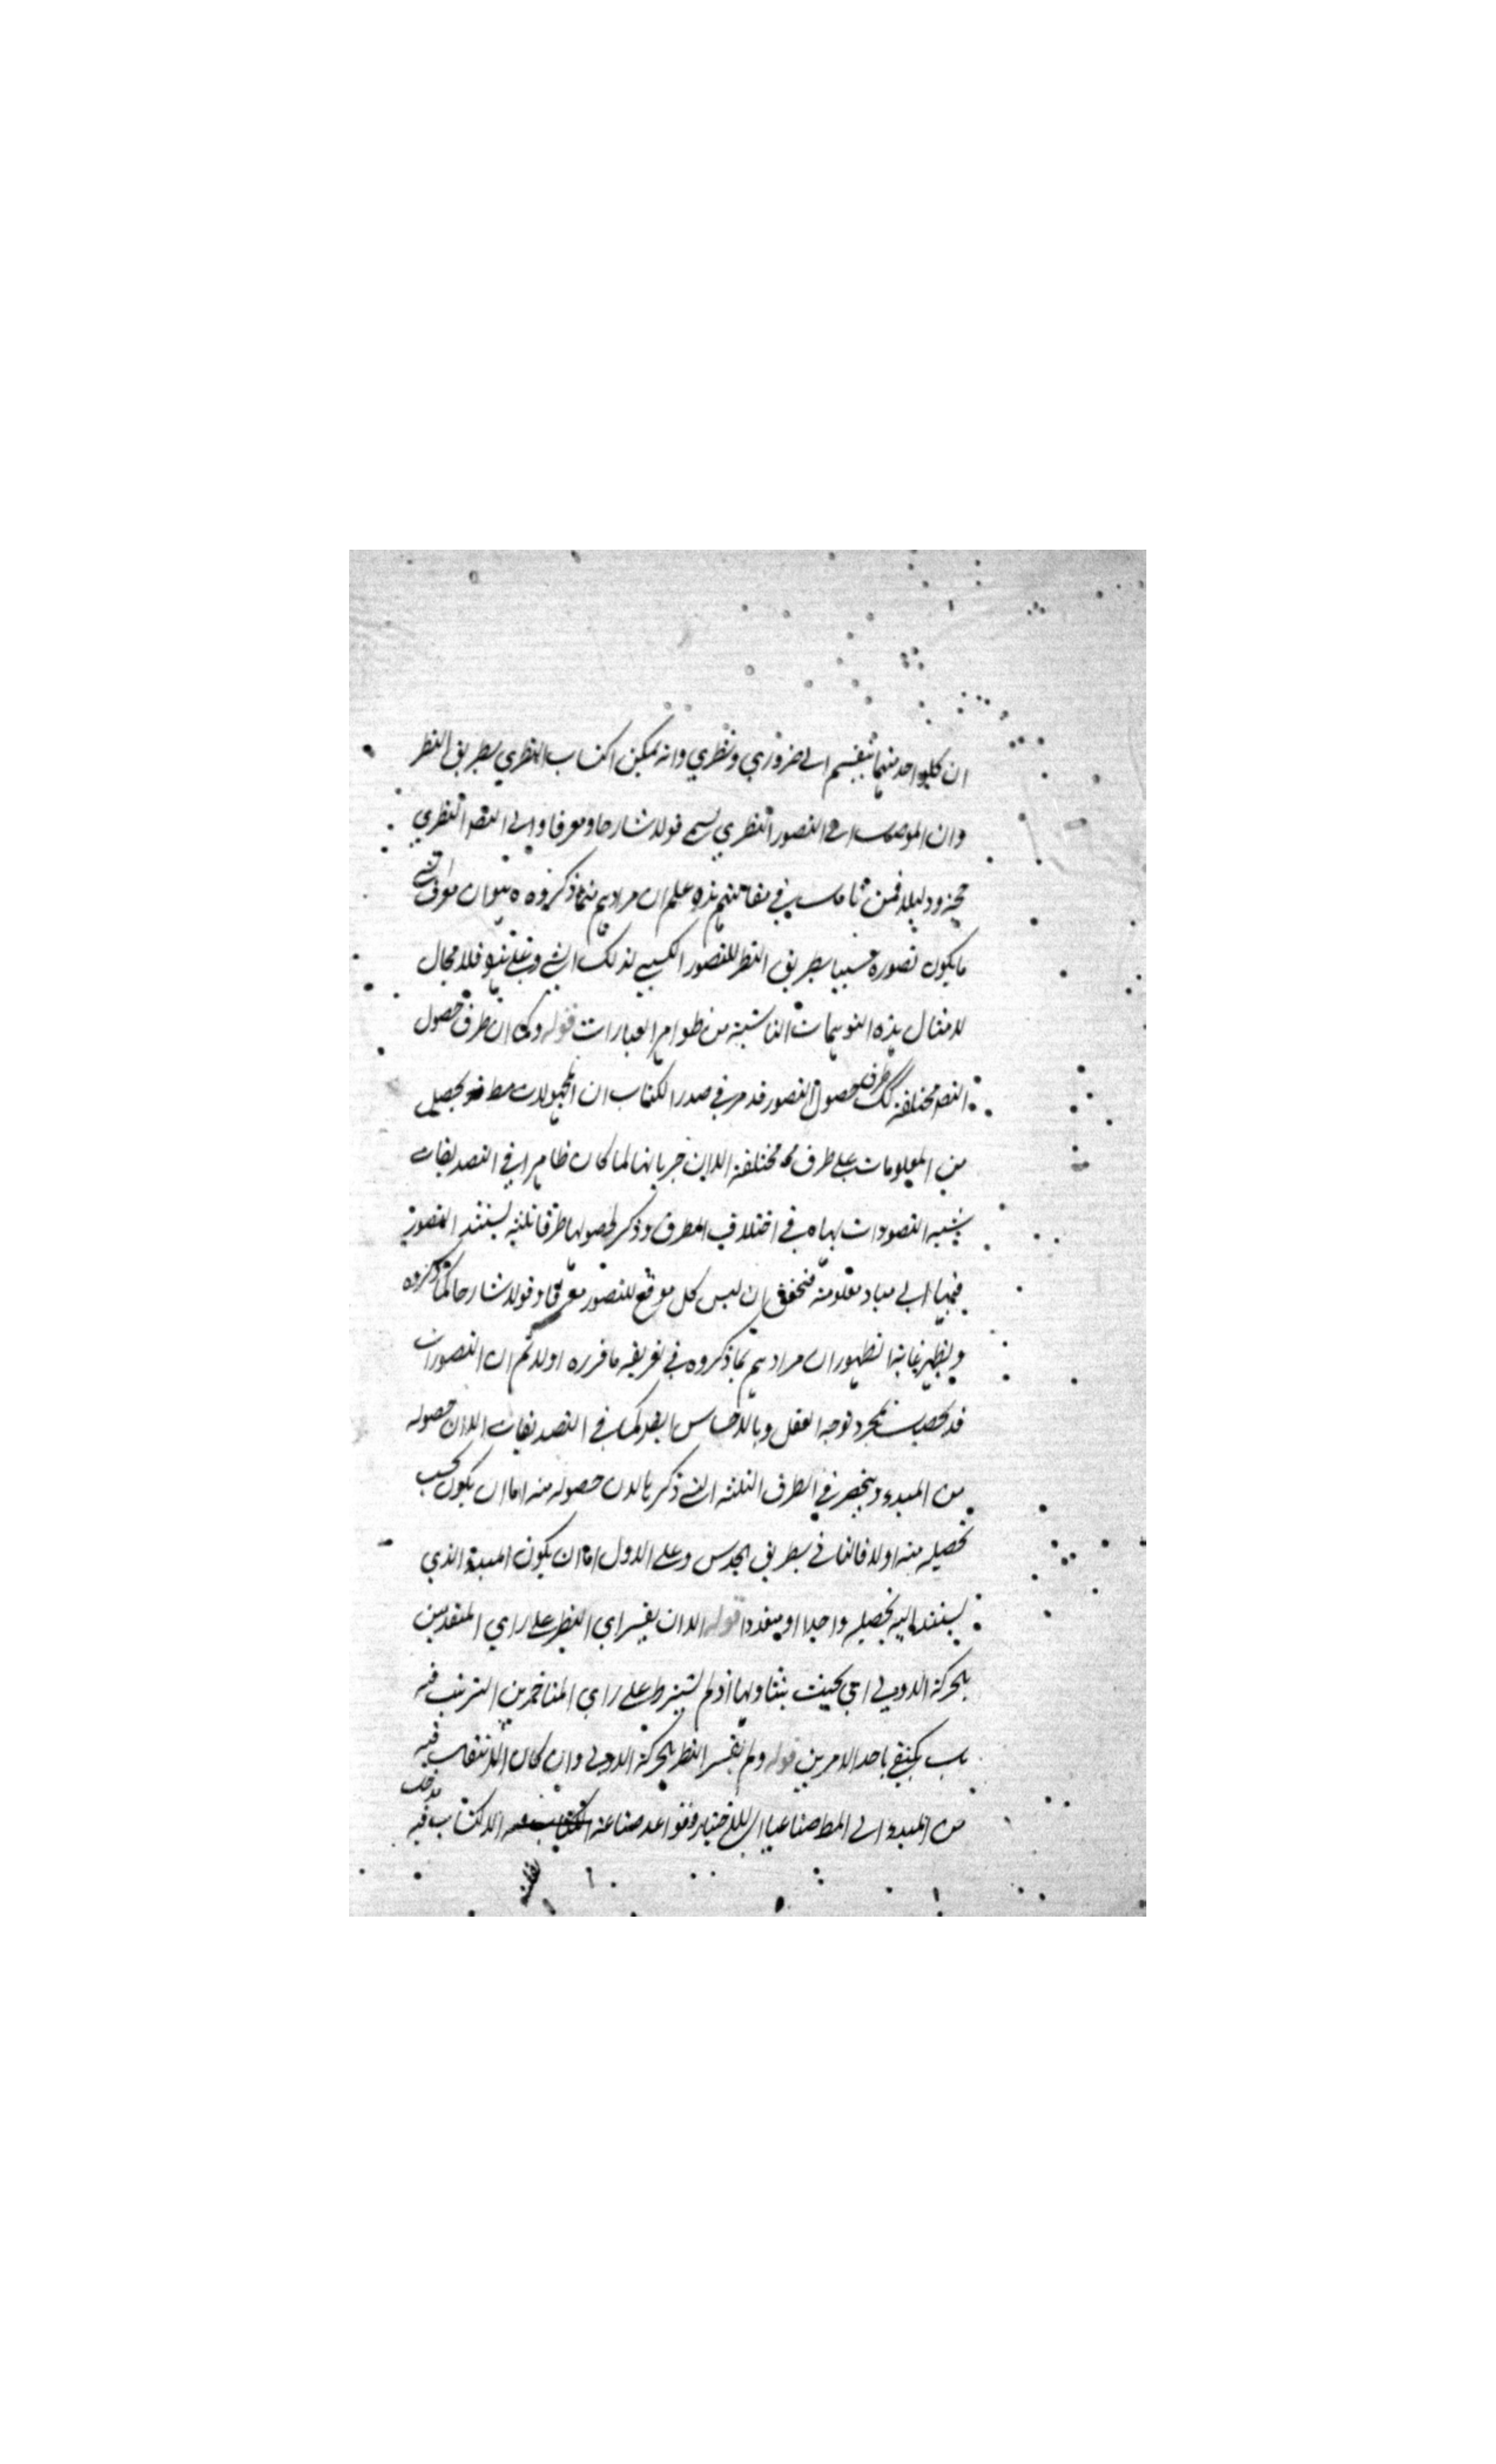 ان كلا واحد منهما ينقسم الى ضروري ونظري وانه يمكن اكتساب النظري بطريق النظر
وان الموصل الى التصور النظري يسمى قولا شارحا ومعرفا والى التصـ النظري
حجة ودليلا فمن تأمل في مقالتهم هذه علم ان مرادهم مما ذكروه هو ان معرف الشئ
ما يكون تصوره سببا بطريق النظر للتصور الكسبي لذلك الشئ وقس عليه فلا مجال
لامثال هذه التوهمات الناشية من ظواهر العبارات قوله وكما ان طرق حصول
التصـ مختلفة كك طرق حصول التصور قد مر في صدر الكتاب ان المجهولات مط يحصل
من المعلومات على طرق مختلفة الا ان جريانها لما كان ظاهرا في التصديقات
شبه التصورات بها في اختلاف الطرق وذكر لحصولها طرقا ثلثة يستند التصور
فيها الى مباد معلومة فتحقق ان ليس كل موقع للتصور معرفا وقولا شارحا كما ذكروه
ويظهر غاية الظهور ان مرادهم بما ذكروه في تعريفه ما قرره اولا ثم ان التصورات
قد يحصل بمجرد توجه العقل وبالاحساس ايضا كما في التصديقات الا ان حصوله
من المبدء ينحصر في الطرق الثلثة التي ذكر لان حصوله منه اما ان يكون بحسب
تحصيله منه اولا فالثاني بطريق الحدس وعلى الاول اما ان يكون المبدء الذي
يستند اليه تحصيله واحدا او متعددا قوله الا ان يفسر اي النظر على راي المتقدمين
بالحركة الاولى اي بحيث يتناولها اذ لم يشترط على راي المتاخرين الترتيب فيه
بل يكتفي باحد الامرين قوله ولم يفسر النظر بالحركة الاولى وان كان الانتقال فيه
من المبدء الى المط صناعيا اي للاختيار وقواعد صناعة الاكتساب فيه مدخل